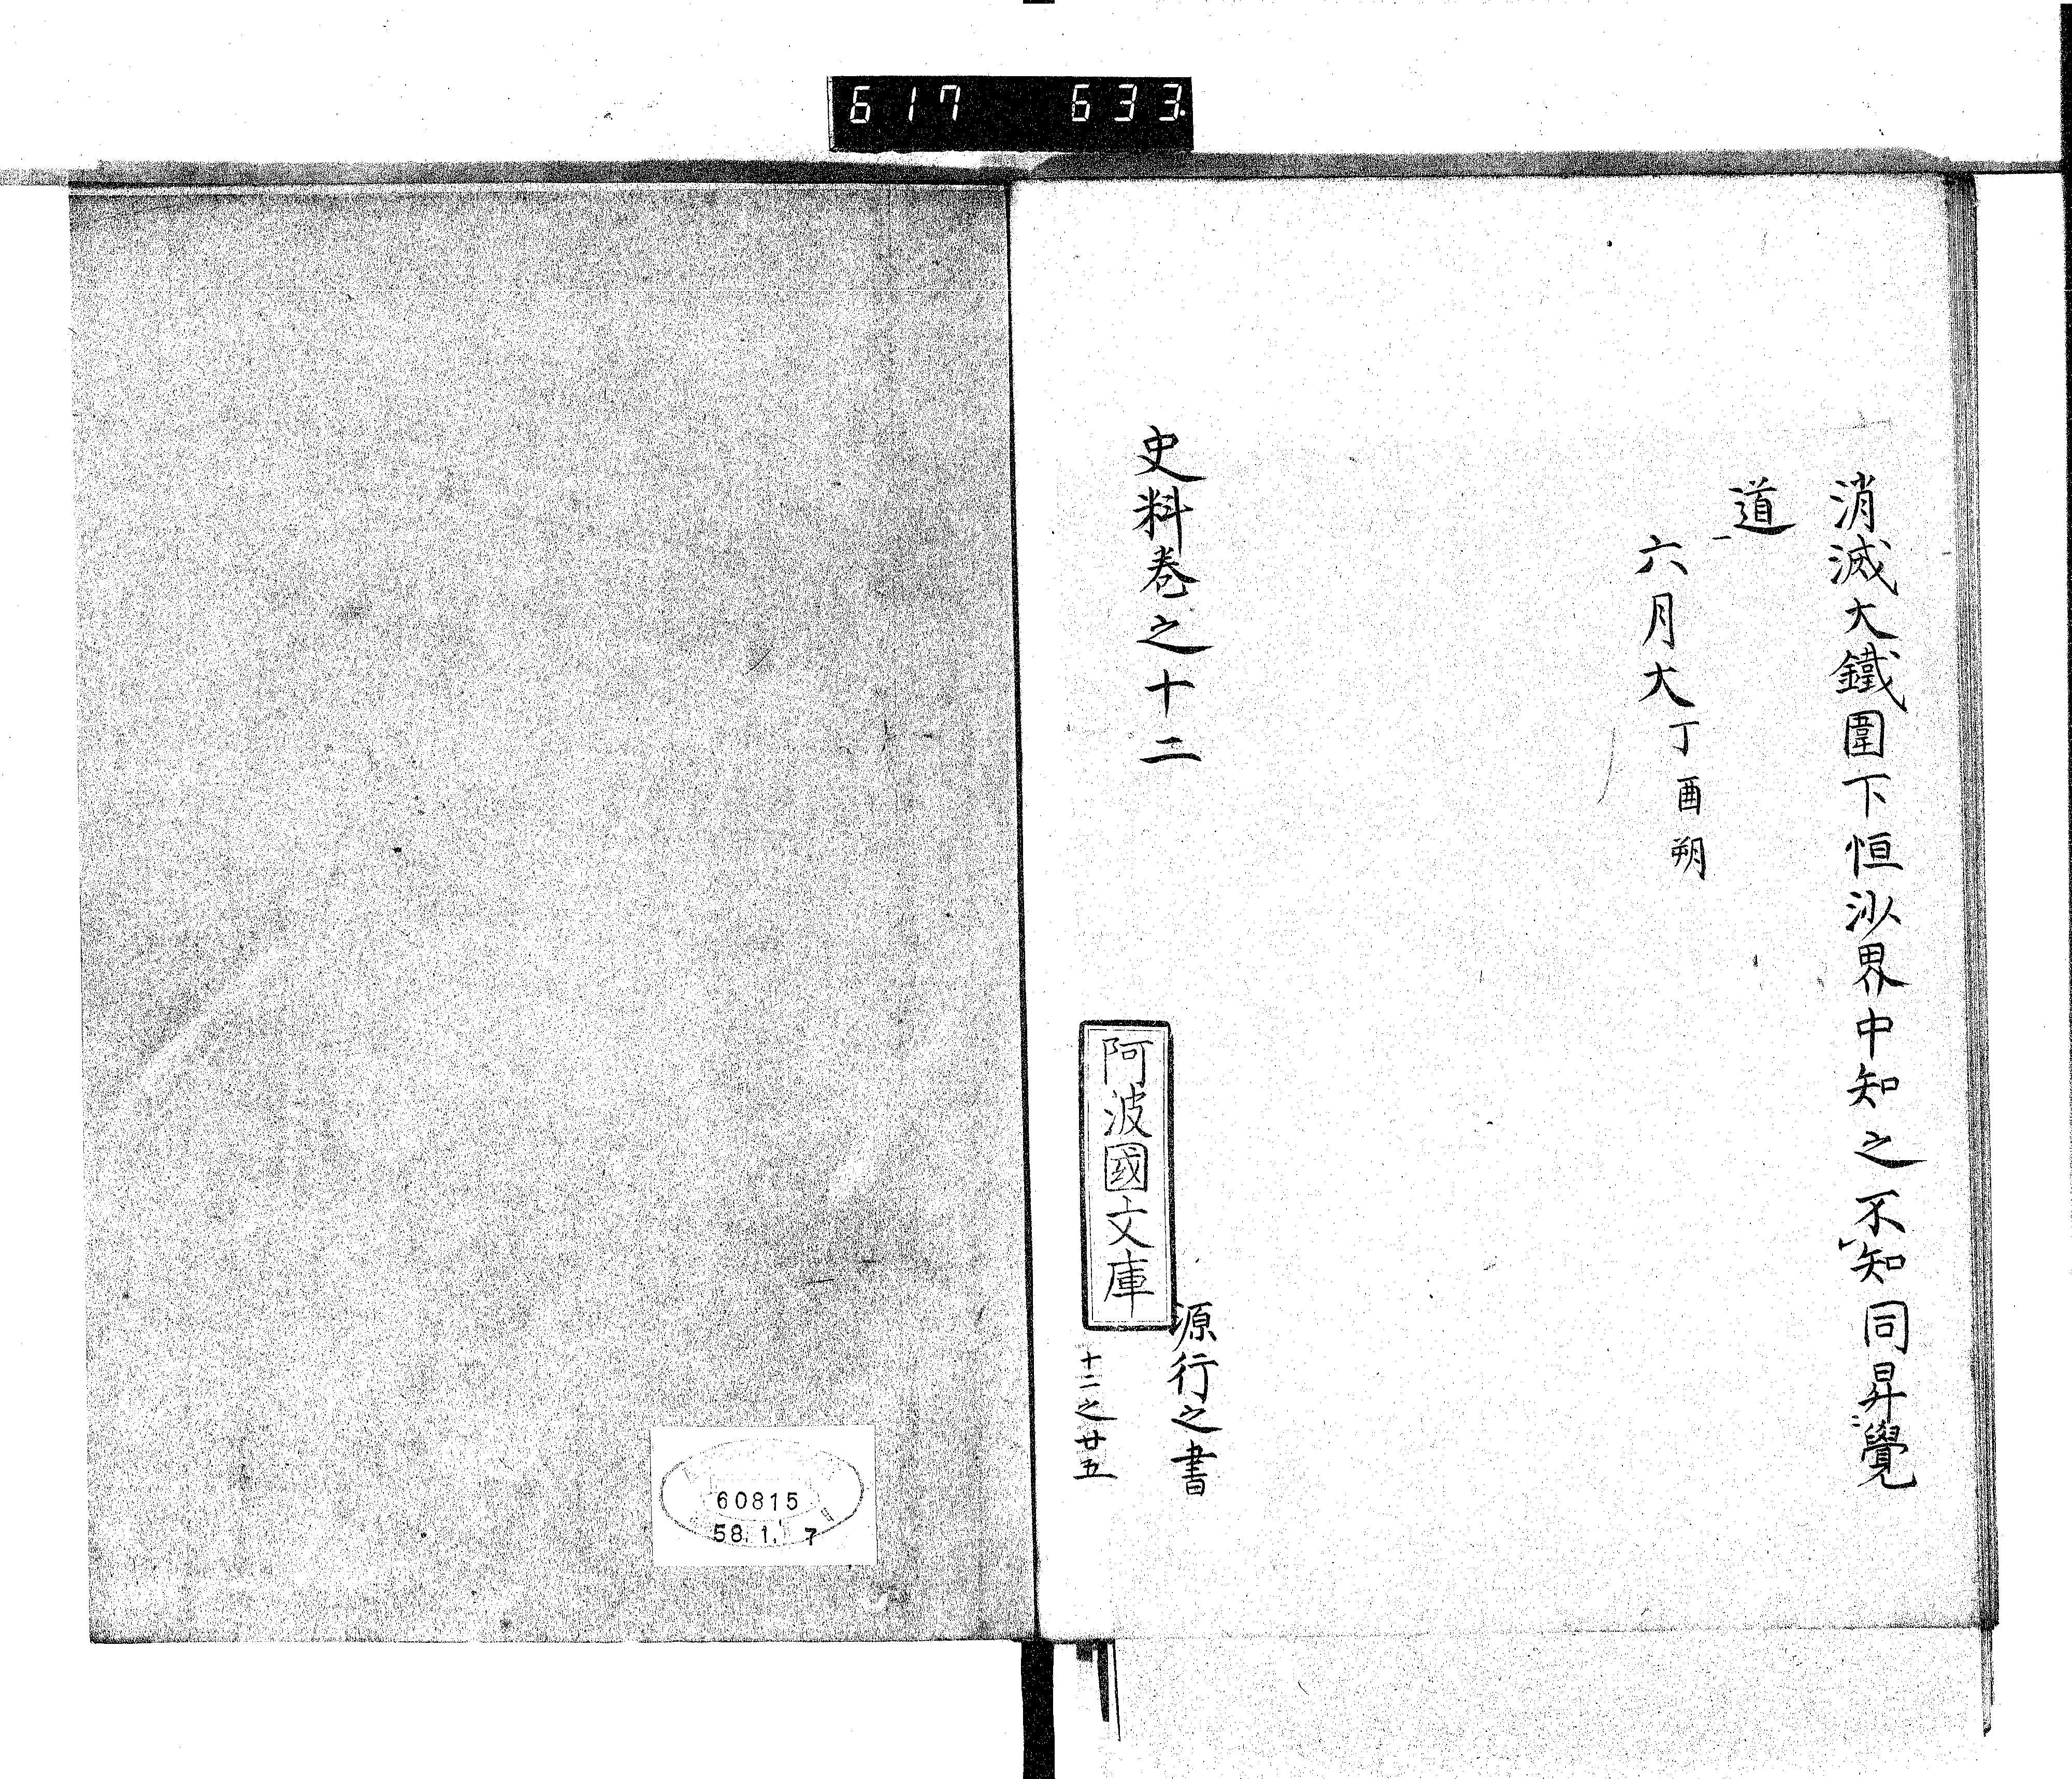 617 633.
消滅大鐵圍下恒沙界中知之不知同昇覺
道
六月大丁酉朔
史料卷之十二
源行之書
阿波國文庫
十二之廿五
60815
58.1.7